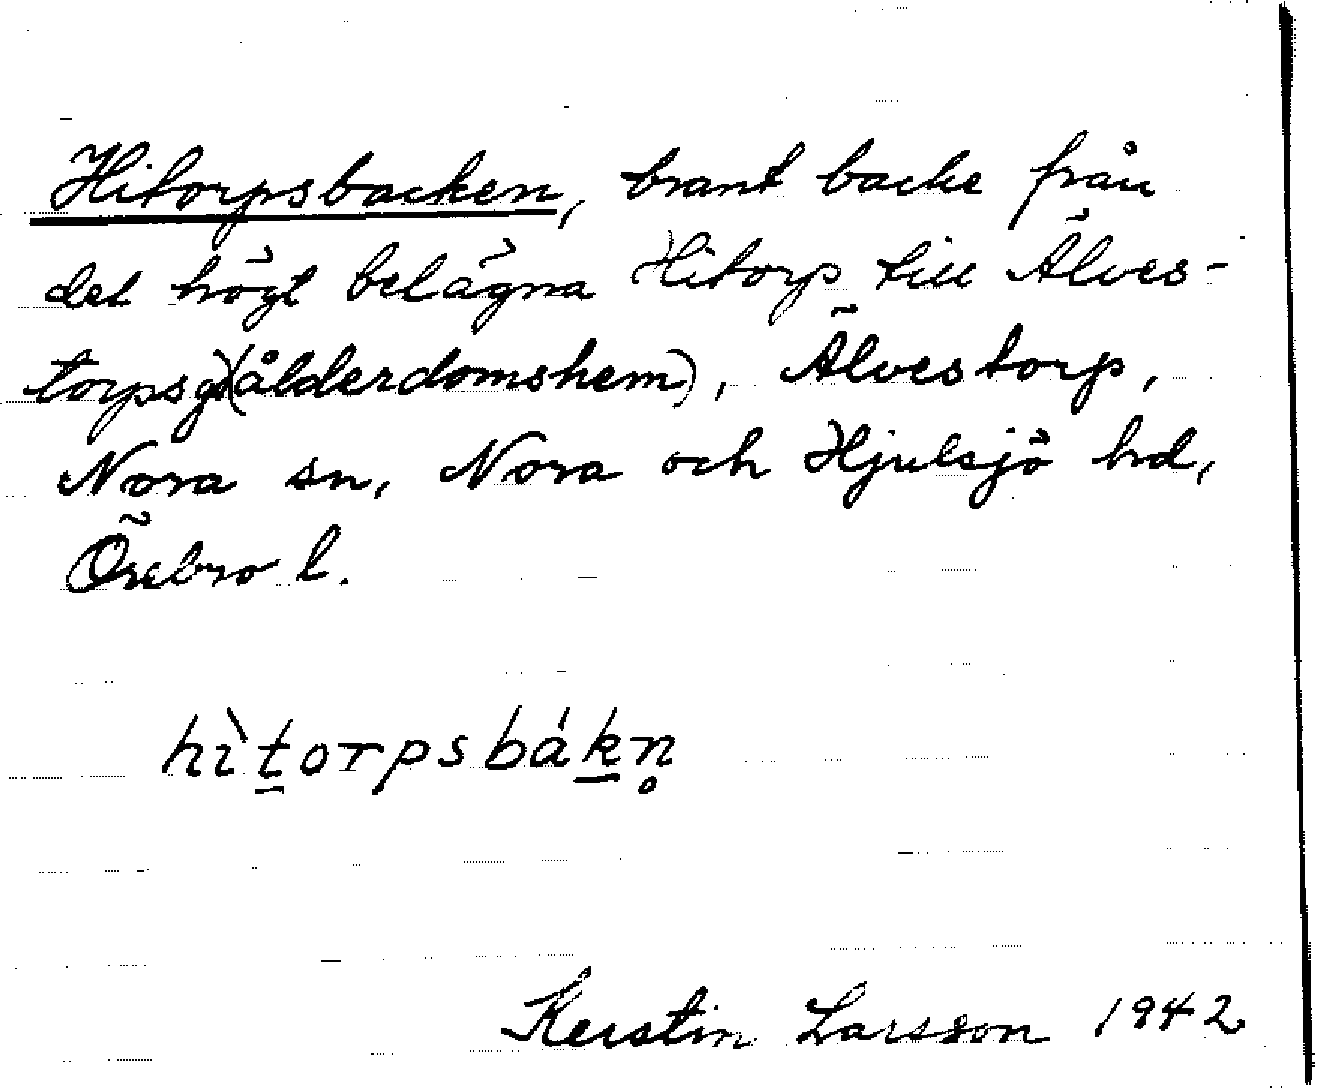 Hitorpsbacken, brant backe från
det högt belägna Hitorp till Älves-
torpsg(ålderdomshem), Älvestorp,
Nora sn, Nora och Hjulsjö hd,
Örebro l.
hìt̠orpsbák̠n̥
Kerstin Larsson 1942